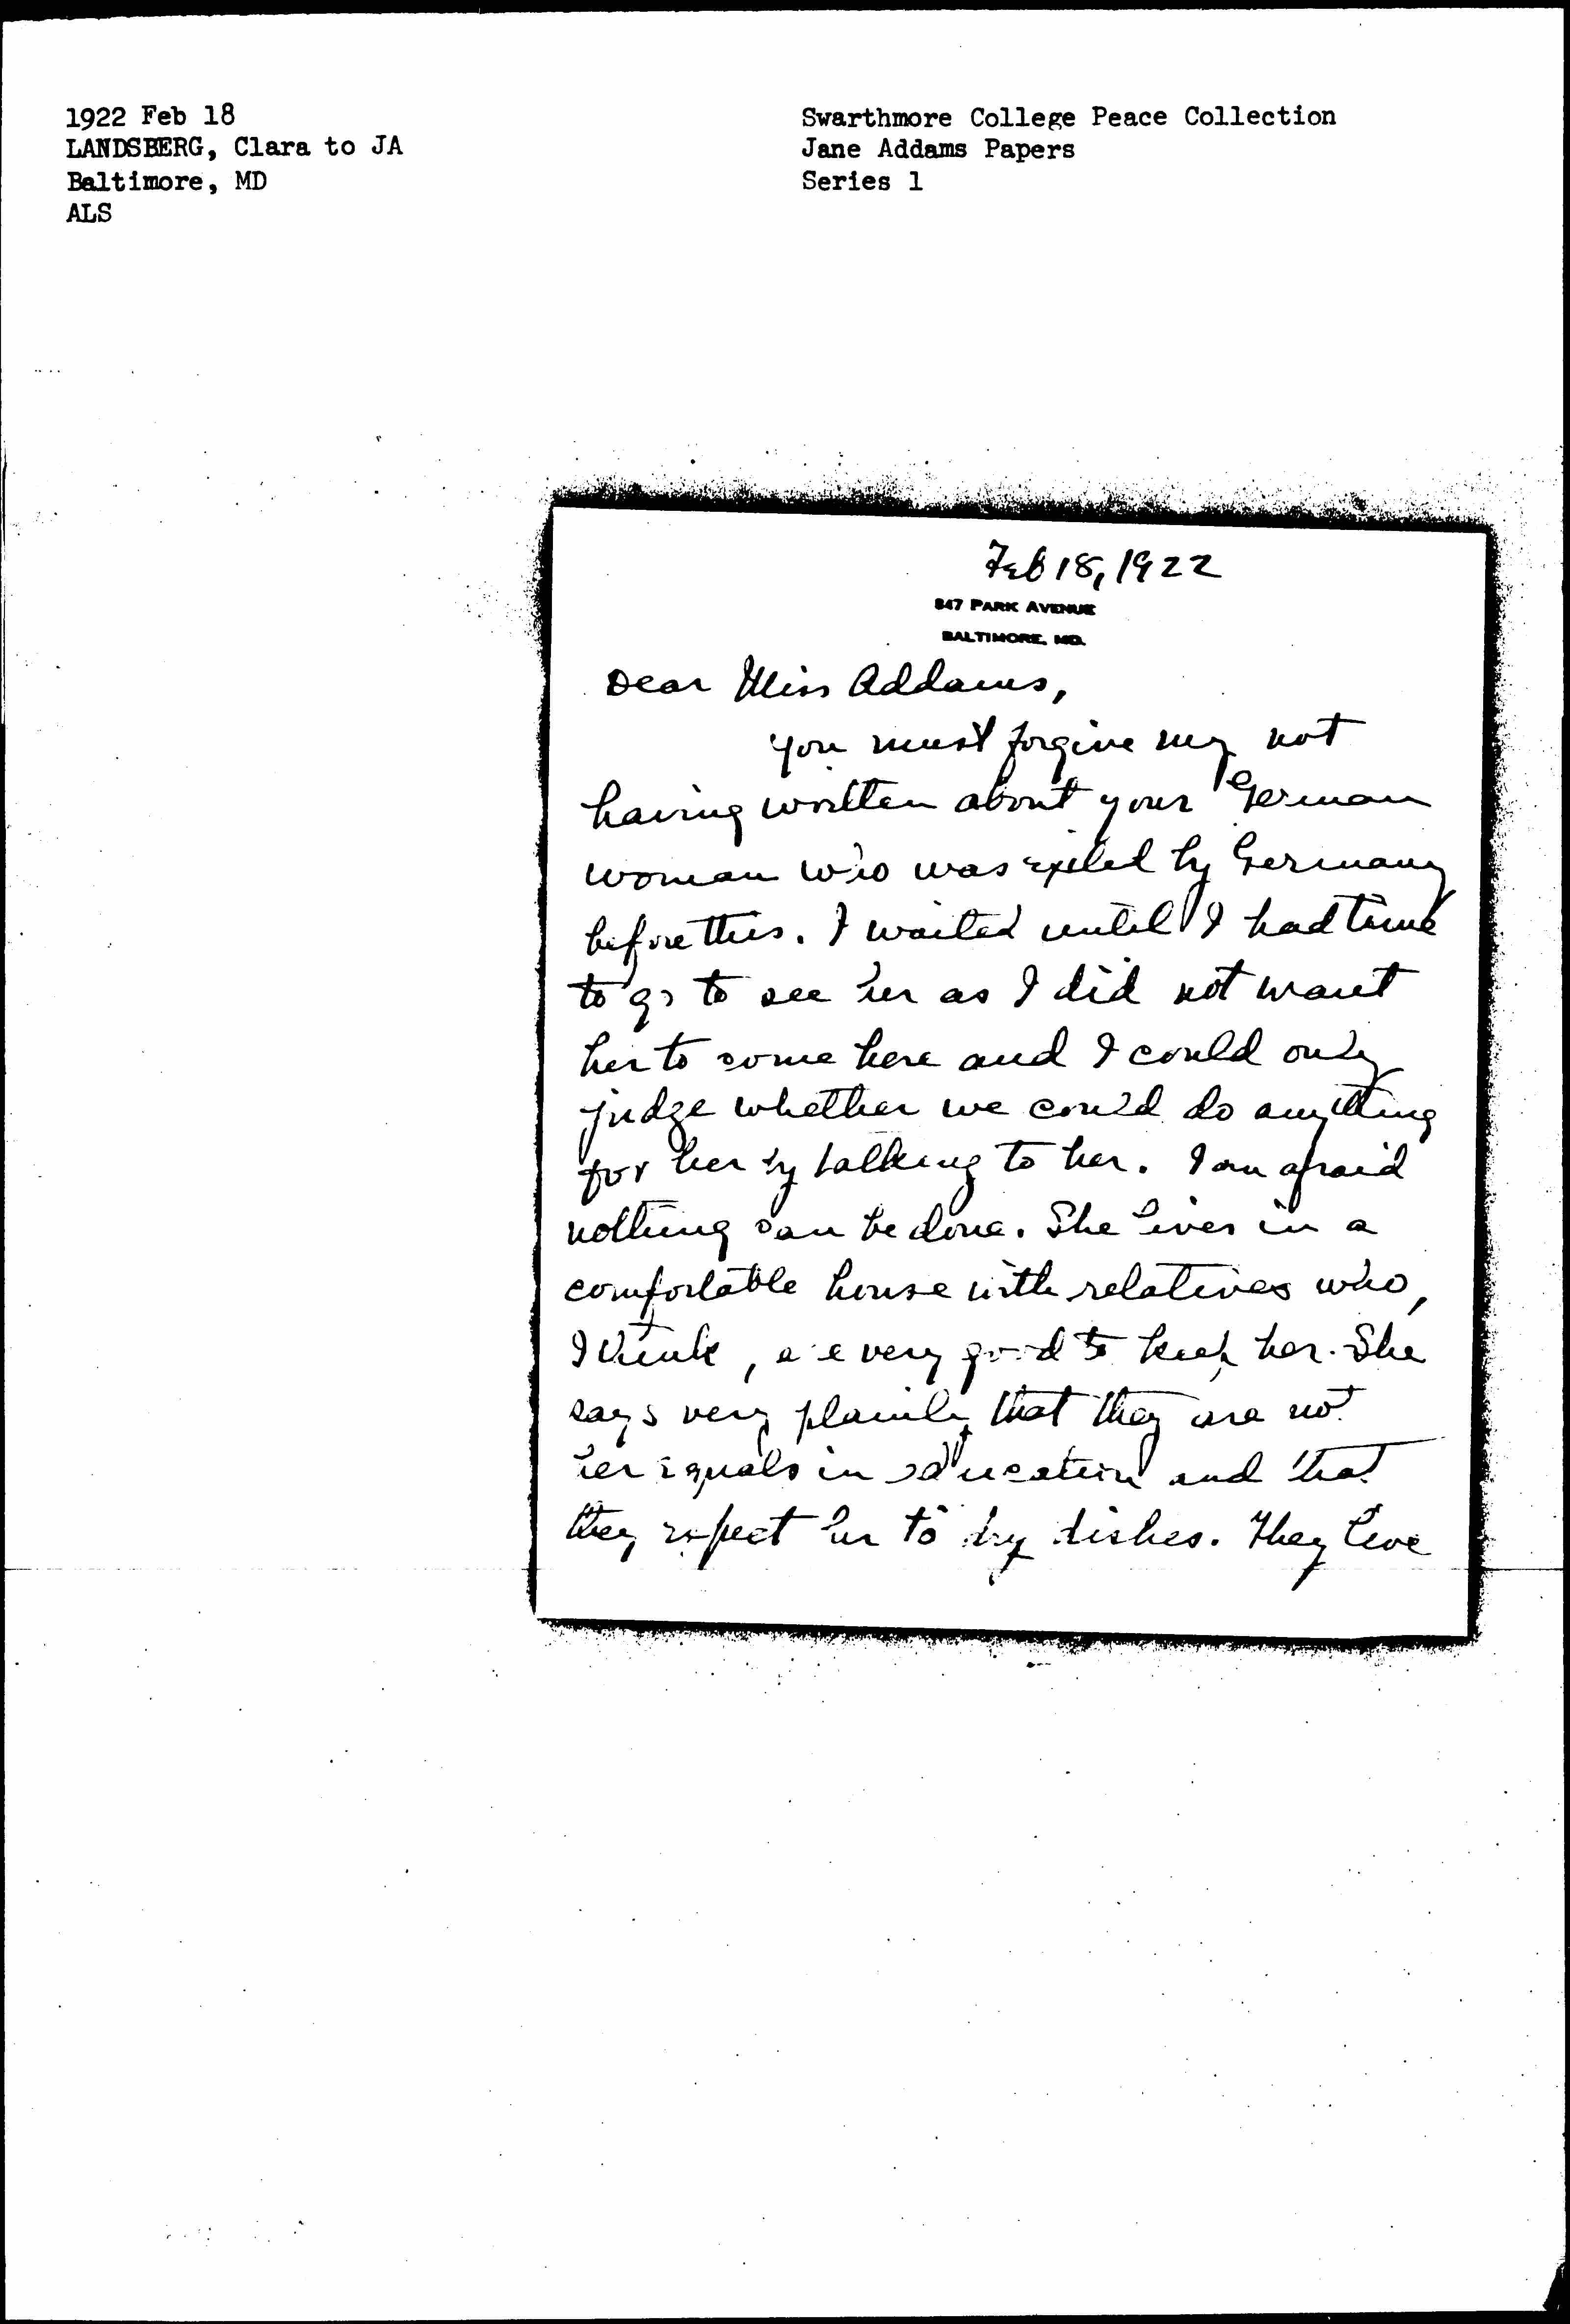 1922 Feb 18
LANDSBERG, Clara to JA
Baltimore, MD
ALS
Swarthmore College Peace Collection
Jane Addams Papers
Series 1
Feb 18, 1922
847 PARK AVENUE
BALTIMORE, MD.
Dear Miss Addams,
You must forgive my not
having written about your German
woman who was exiled by Germany
before this. I waited until I had time
to go to see her as I did not want
her to come here and I could only
judge whether we could do anything
for her by talking to her. I am afraid
nothing can be done. She lives in a
comfortable house with relatives who,
I think, are very good to keep her. She
says very plainly that they are not
her equals in education and that
they expect her to dry dishes. They live